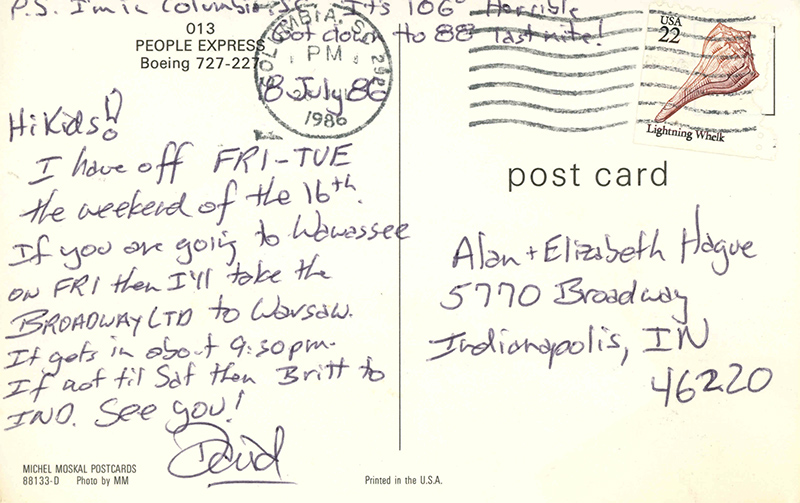 P.S. I'm in Columbia, SC. It's 106° Horrible
Got down to 88 last nite!
013
PEOPLE EXPRESS
Boeing 727-227
COLUMBIA, SC 292
PM
1986
18 July 86
USA
22
Lightning Whelk
Hi Kids!
I have off FRI-TUE
the weekend of the 16th.
If you are going to Wawassee
on FRI then I'll take the
BROADWAY LTD to Warsaw.
It gets in about 9:30pm.
If not til Sat then Britt to
IND. See you!
David
post card
Alan + Elizabeth Hague
5770 Broadway
Indianapolis, IN
46220
MICHEL MOSKAL POSTCARDS
88133-D Photo by MM
Printed in the U.S.A.